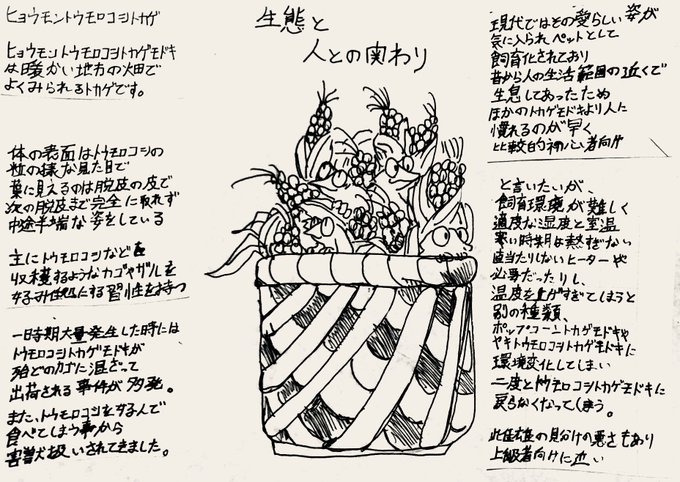 ヒョウモントウモロコシトカゲ
ヒョウモントウモロコシトカゲモドキ
は暖かい地方の畑で
よくみられるトカゲです。
体の表面はトウモロコシの
粒の様な見た目で
葉に見えるのは脱皮の皮で
次の脱皮まで完全に取れず
中途半端な姿をしている
主にトウモロコシなどを
収穫するようなカゴやザルを
するみ処にする習性を持つ
一時期大量発生した時には
トウモロコシトカゲモドキが
殆どのカゴに混ざって
出荷される事件が多発。
また、トウモロコシをするんで
食べてしまう事から
害獣扱いされてきました。
生態と
人との関わり
現代ではその愛らしい姿が
気に入られペットとして
飼育化されており
昔から人の生活範囲の近くで
生息してあったため
ほかのトカゲモドキより人に
慣れるのが早く
比較的初心者向け
と言いたいが、
飼育環境が難しく
適度な湿度と室温
寒い時期は熱すぎない
直当たりしないヒーターや
必要だったりし、
温度を上げすぎてしまうと
別の種類、
ポップコーントカゲモドキや
ヤキトウモロコシトカゲモドキに
環境変化してしまい
二度とトウモロコシトカゲモドキに
戻らなくなってしまう。
雌雄の見分けの悪さもあり
上級者向けに近い